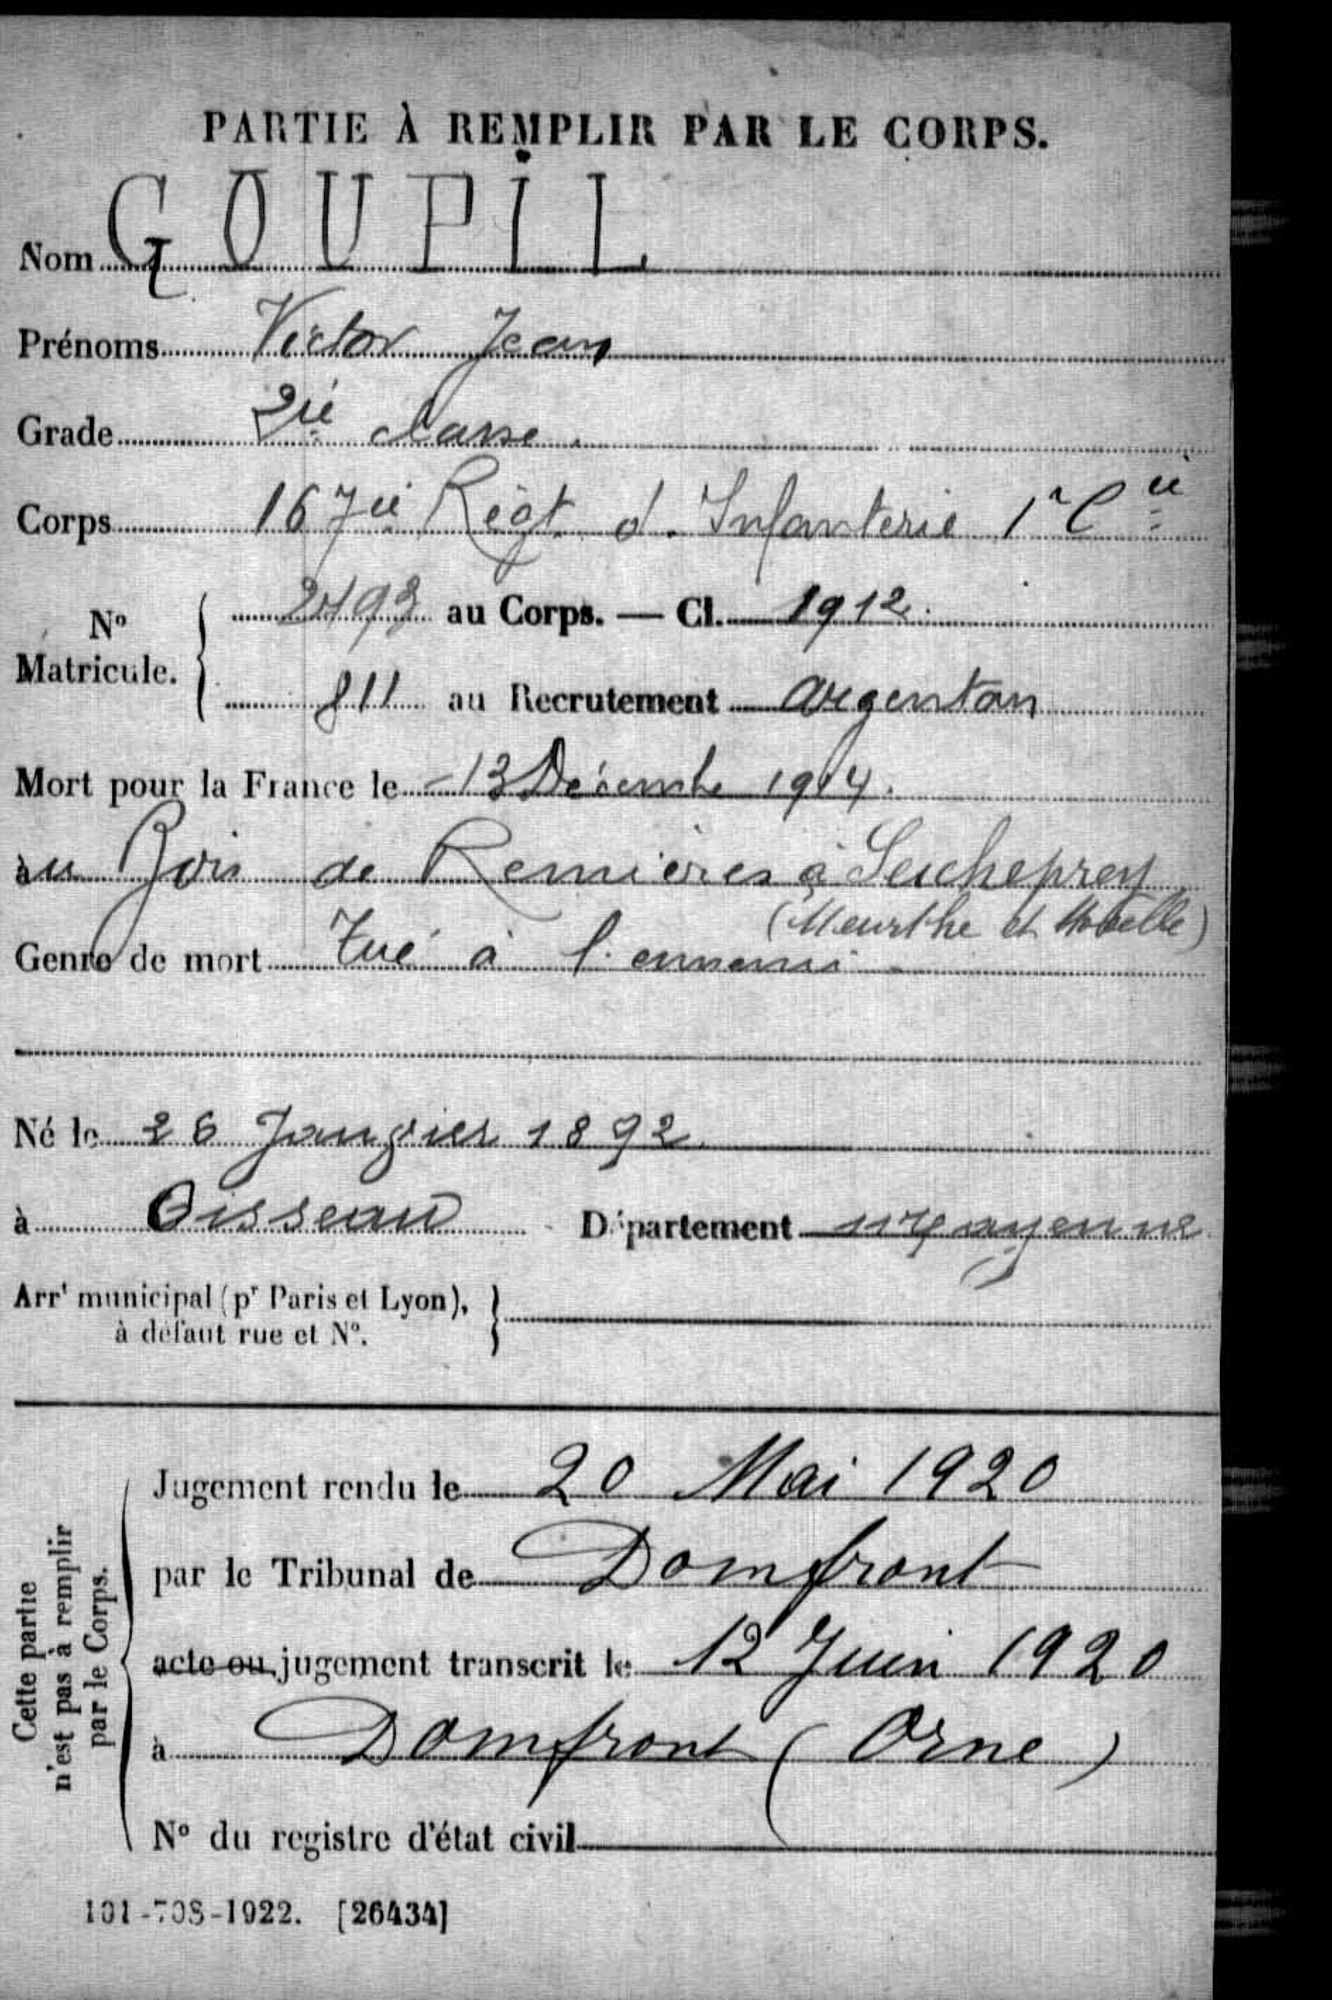 PARTIE À REMPLIR PAR LE CORPS.
Nom GOUPIL
Prénoms Victor Jean
Grade 2iè classe.
Corps 167iè Régt d'Infanterie 1r Cie
No Matricule. 2493 au Corps. — Cl. 1912.
811 au Recrutement Argentan
Mort pour la France le 13 Décembre 1914.
au Bois de Remières à Seicheprey
(Meurthe et Moselle)
Genre de mort Tué à l'ennemi
Né le 26 Janvier 1892.
à Oisseau Département Mayenne
Arrt municipal (pr Paris et Lyon),
à défaut rue et No.
Cette partie n'est pas à remplir par le Corps.
Jugement rendu le 20 Mai 1920
par le Tribunal de Domfront
acte ou jugement transcrit le 12 Juin 1920
à Domfront (Orne)
No du registre d'état civil
101-708-1922. [26434]